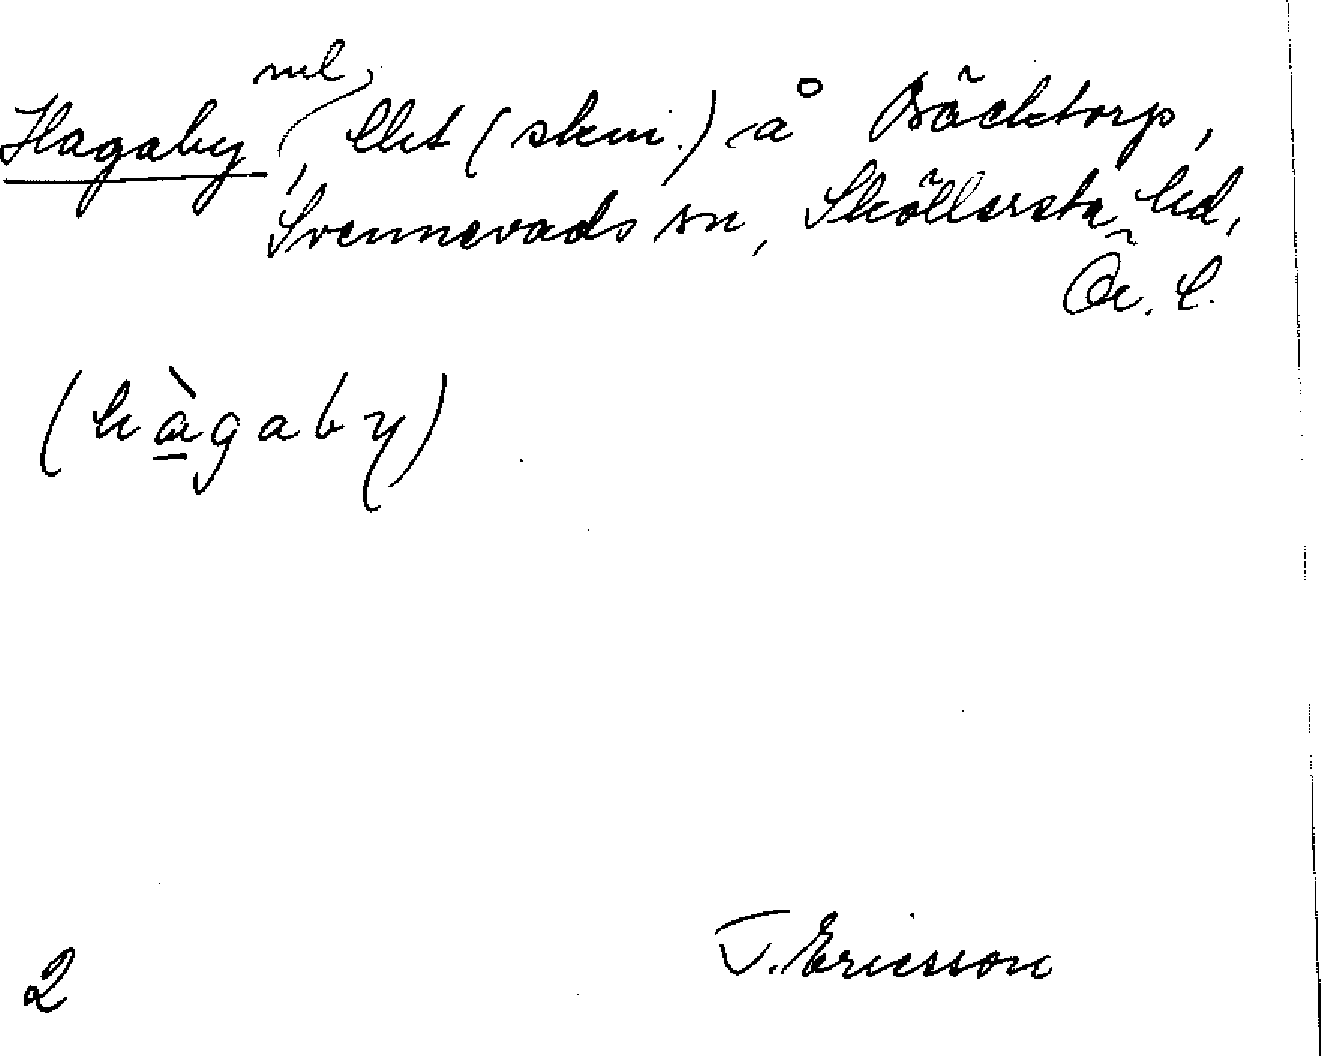 Hagaby, lht (skm.) å Bäcktorp,
Svennevads sn, Sköllersta hd,
Ör. l.
(hàgaby)
T. Ericsson
2